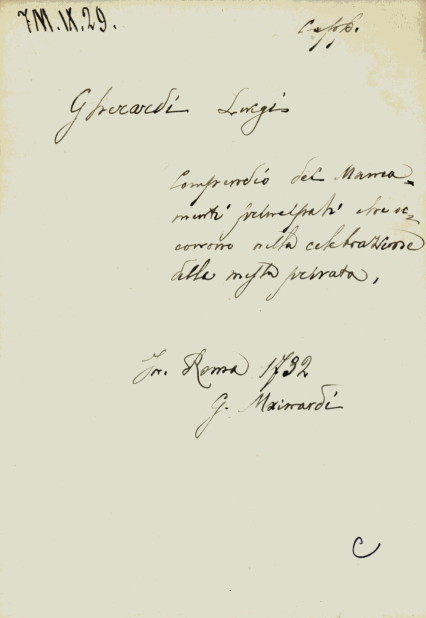 7M.IX.29.
Capp.
Gherardi Luigi
Compendio dei Manca-
menti principali che oc-
corrono nella celebrazione
della messa privata,
In Roma 1732
G. Mainardi
C